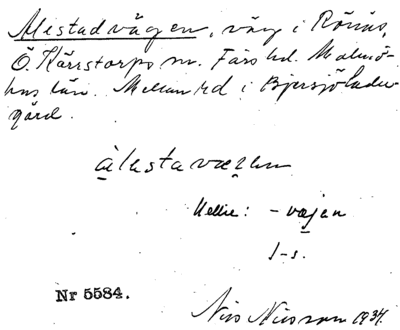 Mistadvägen, väg i Rönås,
Ö. Kärrstorps sn. Färs hd. Malmö-
hus län. Mellan rd i Bjersjöladu-
gård.
älestavæzen
Kellie: - væjen
J-s.
Nr 5584.
Nils Nilsson 1934.